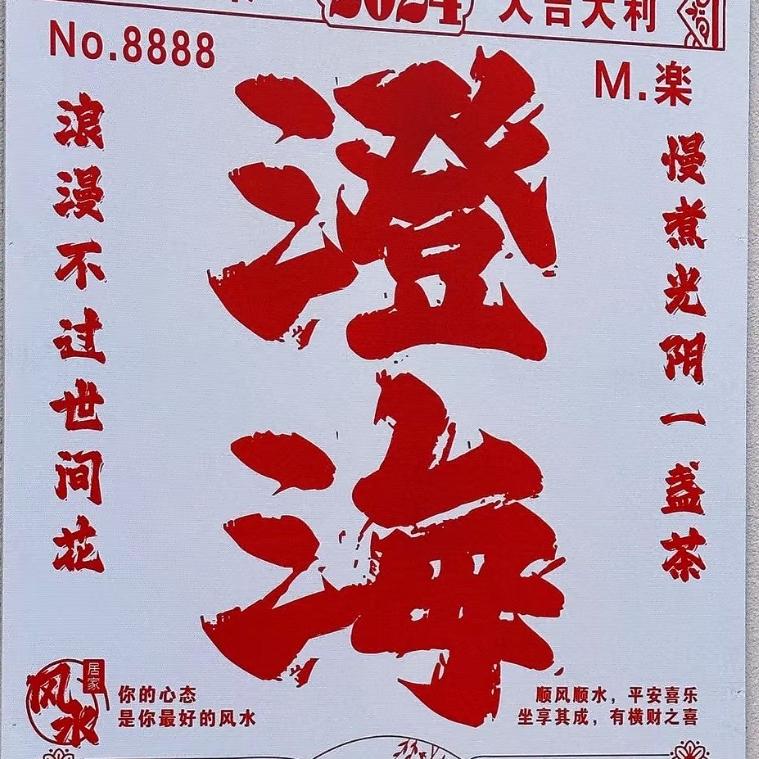 2024
大吉大利
No.8888
M.楽
澄海
浪漫不过世间花
慢煮光阴一盏茶
居家
风水
你的心态
是你最好的风水
顺风顺水，平安喜乐
坐享其成，有横财之喜